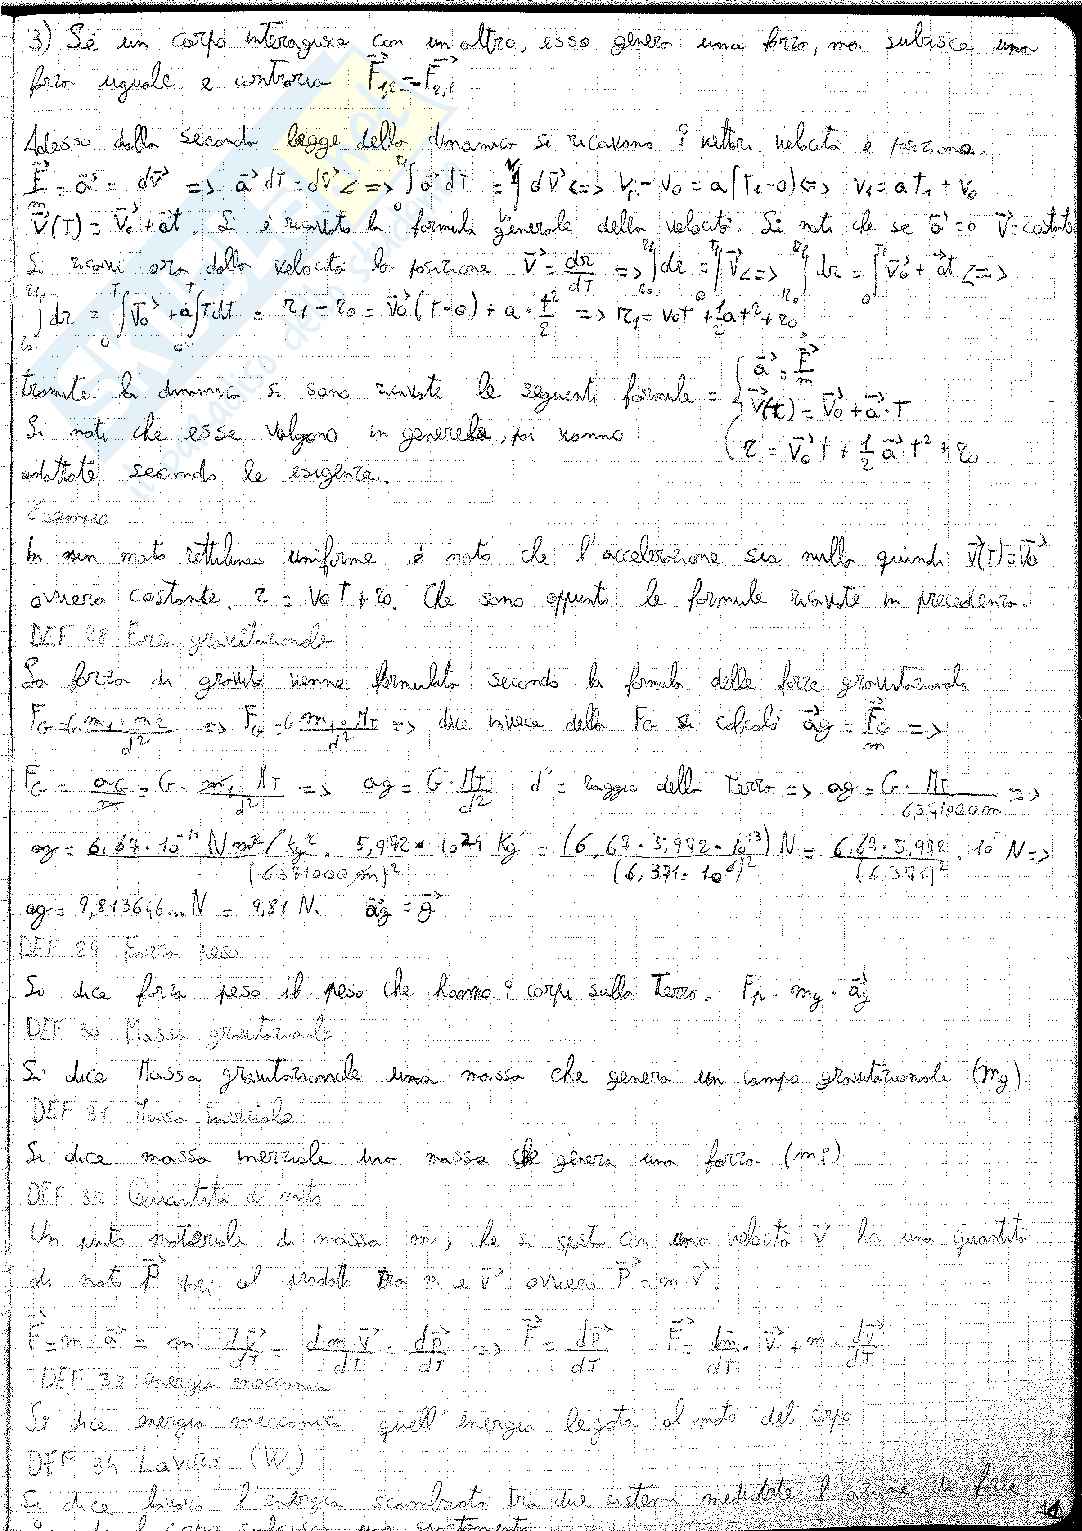 3) Se un corpo interagisce con un altro, esso genera una forza, ma subisce una
forza uguale e contraria F⃗1,2 = -F⃗2,1
Adesso dalla seconda legge della dinamica si ricavano i vettori velocità e posizione.
F⃗/m = a⃗ = dv⃗ => a⃗ dT = dv⃗ <=> ∫a⃗ dT = ∫dv⃗ <=> v1 - v0 = a(T1-0) <=> v1 = aT1 + v0
v⃗(T) = v⃗0 + a⃗t. Si è ricavata la formula generale della velocità. Si noti che se a⃗ = 0 v⃗ = costante
Si ricavi ora dalla velocità la posizione v⃗ = dr/dT => ∫dr = ∫v⃗ <=> ∫dr = ∫v⃗0 + a⃗t <=>
∫dr = ∫v⃗0 + a⃗∫TdT = r1 - r0 = v⃗0(T-0) + a · t²/2 => r1 = v0T + 1/2at² + r0
tramite la dinamica si sono ricavate le seguenti formule = { a⃗ = F⃗/m
v⃗(t) = v⃗0 + a⃗·T
Si noti che esse valgono in generale, poi vanno
r = v⃗0t + 1/2 a⃗ t² + r0
adattate secondo le esigenze.
In un moto rettilineo uniforme è noto che l'accelerazione sia nulla quindi v⃗(T) = v⃗0
ovvero costante. r = v0T + r0. Che sono appunto le formule ricavate in precedenza.
DEF 28 Forza gravitazionale
La forza di gravità venne formulata secondo la formula delle forze gravitazionali
FG = G m1·m2/d² => FG = G m1·MT/d² => dice invece della FG si calcoli a⃗g = F⃗G/m =>
FG = aG/m = G· m1·MT/d² => ag = G·MT/d² d = raggio della Terra => ag = G·MT/6371000m =>
ag = 6,67·10⁻¹¹ Nm²/kg² · 5,972·10²⁴ Kg/(6371000m)² = (6,67·5,972·10¹³)N/(6,371·10⁶)² = 6,67·5,972/(6,371)² · 10 N =>
ag = 9,813646...N = 9,81 N. a⃗g = g⃗
DEF 29 Forza peso
Si dice forza peso il peso che hanno i corpi sulla Terra. Fp = mg·a⃗g
DEF 30 Massa gravitazionale
Si dice Massa gravitazionale una massa che genera un campo gravitazionale (mg)
DEF 31 Massa Inerziale
Si dice massa inerziale una massa che genera una forza. (mi)
DEF 32 Quantità di moto
Un punto materiale di massa m, che si sposta con una velocità v⃗ ha una quantità
di moto P⃗ pari al prodotto tra m e v⃗ ovvero P⃗ = m v⃗.
F⃗ = m·a⃗ = m dv⃗/dT = dmv⃗/dT = dp⃗/dT => F⃗ = dp⃗/dT F⃗ = dm/dT · v⃗ + m·dv⃗/dT
DEF 33 energia meccanica
Si dice energia meccanica quell'energia legata al moto del corpo
DEF 34 Lavoro (W)
Si dice lavoro l'energia scambiata tra due sistemi mediante l'azione di forze